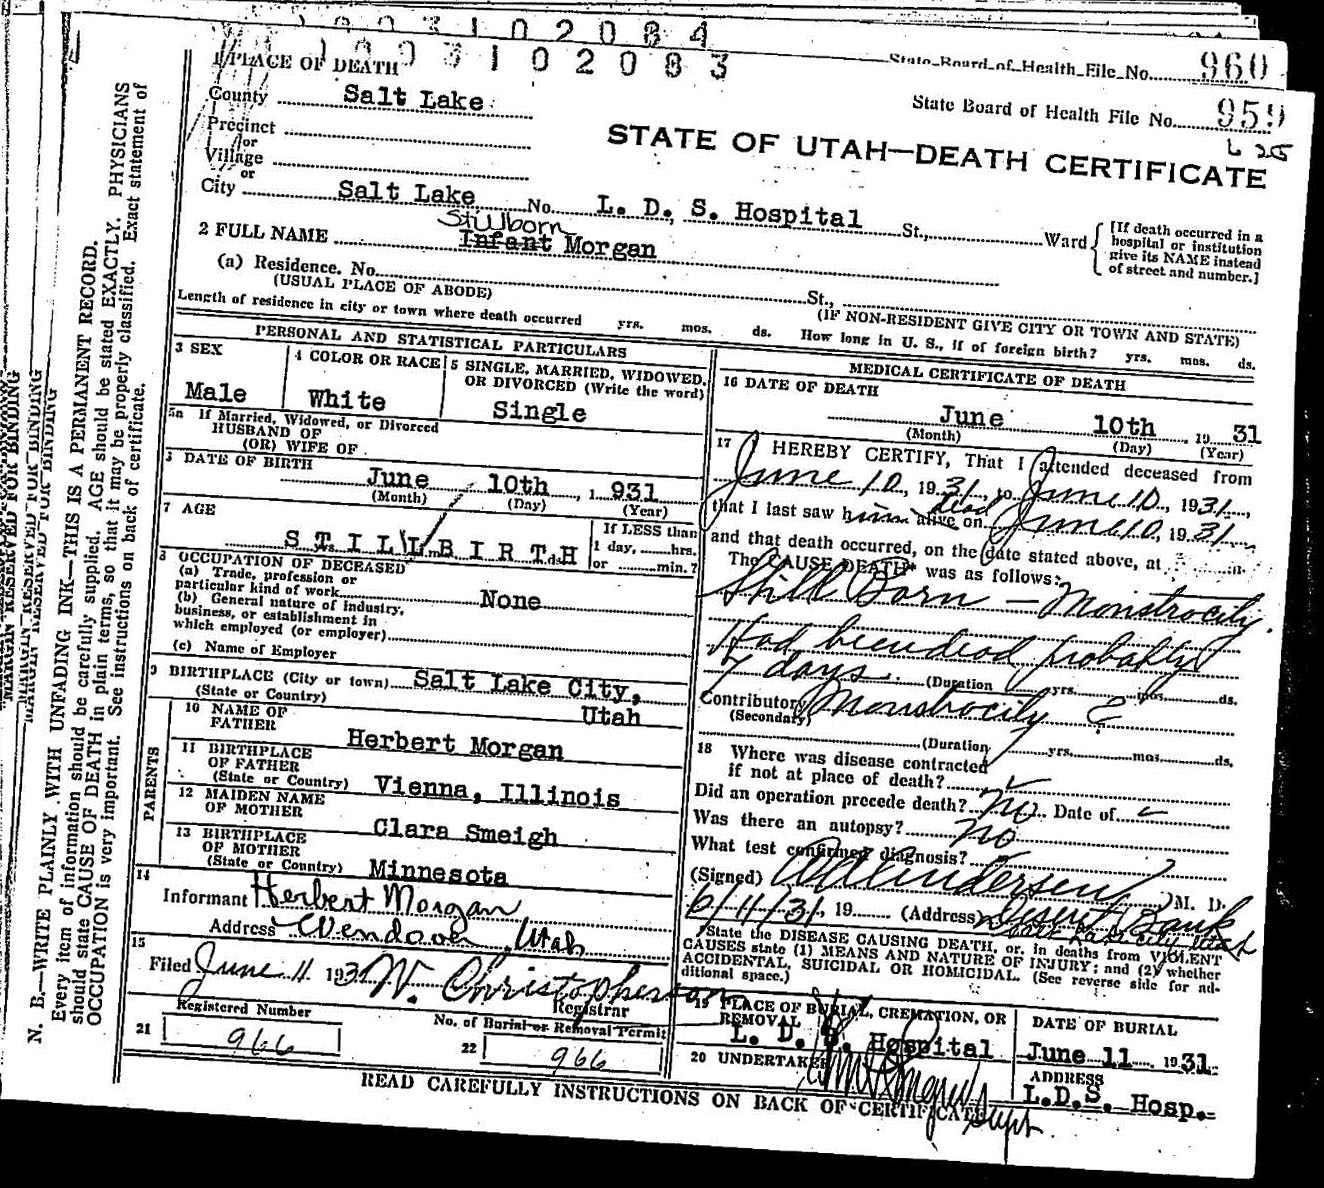 3102084
003102083
State Board of Health File No. 960
1 PLACE OF DEATH
State Board of Health File No. 959
County Salt Lake
Precinct
or
Village
or
STATE OF UTAH—DEATH CERTIFICATE
City Salt Lake No. L. D. S. Hospital St., Ward
[If death occurred in a hospital or institution give its NAME instead of street and number.]
Stillborn
2 FULL NAME Infant Morgan
(a) Residence. No. St.,
(USUAL PLACE OF ABODE) (IF NON-RESIDENT GIVE CITY OR TOWN AND STATE)
Length of residence in city or town where death occurred yrs. mos. ds. How long in U. S., if of foreign birth? yrs. mos. ds.
PERSONAL AND STATISTICAL PARTICULARS
3 SEX
Male
4 COLOR OR RACE
White
5 SINGLE, MARRIED, WIDOWED, OR DIVORCED (Write the word)
Single
5a If Married, Widowed, or Divorced
HUSBAND OF
(OR) WIFE OF
DATE OF BIRTH
June 10th, 1931
(Month) (Day) (Year)
7 AGE
STILLBIRTH
If LESS than
1 day, hrs.
or min.?
8 OCCUPATION OF DECEASED
(a) Trade, profession or
particular kind of work None
(b) General nature of industry,
business, or establishment in
which employed (or employer)
(c) Name of Employer
9 BIRTHPLACE (City or town) Salt Lake City,
(State or Country) Utah
PARENTS
10 NAME OF
FATHER Herbert Morgan
11 BIRTHPLACE
OF FATHER
(State or Country) Vienna, Illinois
12 MAIDEN NAME
OF MOTHER Clara Smeigh
13 BIRTHPLACE
OF MOTHER
(State or Country) Minnesota
14
Informant Herbert Morgan
Address Wendover, Utah
15
Filed June 11 1931 W. Christopherson
Registrar
Registered Number
21 966
No. of Burial or Removal Permit
22 966
MEDICAL CERTIFICATE OF DEATH
16 DATE OF DEATH
June 10th 1931
(Month) (Day) (Year)
17 I HEREBY CERTIFY, That I attended deceased from
June 10, 1931, to June 10, 1931,
dead
that I last saw him alive on June 10, 1931
and that death occurred, on the date stated above, at m.
The CAUSE DEATH* was as follows:
Still Born — Monstrocity
Had been dead probably
7 days. (Duration yrs. mos. ds.
Contributory Monstrocity ?
(Secondary)
(Duration yrs. mos. ds.
18 Where was disease contracted
if not at place of death?
Did an operation precede death? no Date of
Was there an autopsy? no
What test confirmed diagnosis?
(Signed) Andersen M. D.
6/11/31, 19 (Address) Deseret Bank
Salt Lake City Utah
*State the DISEASE CAUSING DEATH, or, in deaths from VIOLENT
CAUSES state (1) MEANS AND NATURE OF INJURY; and (2) whether
ACCIDENTAL, SUICIDAL OR HOMICIDAL. (See reverse side for ad-
ditional space.)
19 PLACE OF BURIAL, CREMATION, OR
REMOVAL
L. D. S. Hospital
DATE OF BURIAL
June 11 1931
20 UNDERTAKER
Supt.
ADDRESS
L.D.S. Hosp.
READ CAREFULLY INSTRUCTIONS ON BACK OF CERTIFICATE
MARGIN RESERVED FOR BINDING
N. B.—WRITE PLAINLY WITH UNFADING INK—THIS IS A PERMANENT RECORD.
Every item of information should be carefully supplied. AGE should be stated EXACTLY. PHYSICIANS
should state CAUSE OF DEATH in plain terms, so that it may be properly classified. Exact statement of
OCCUPATION is very important. See instructions on back of certificate.